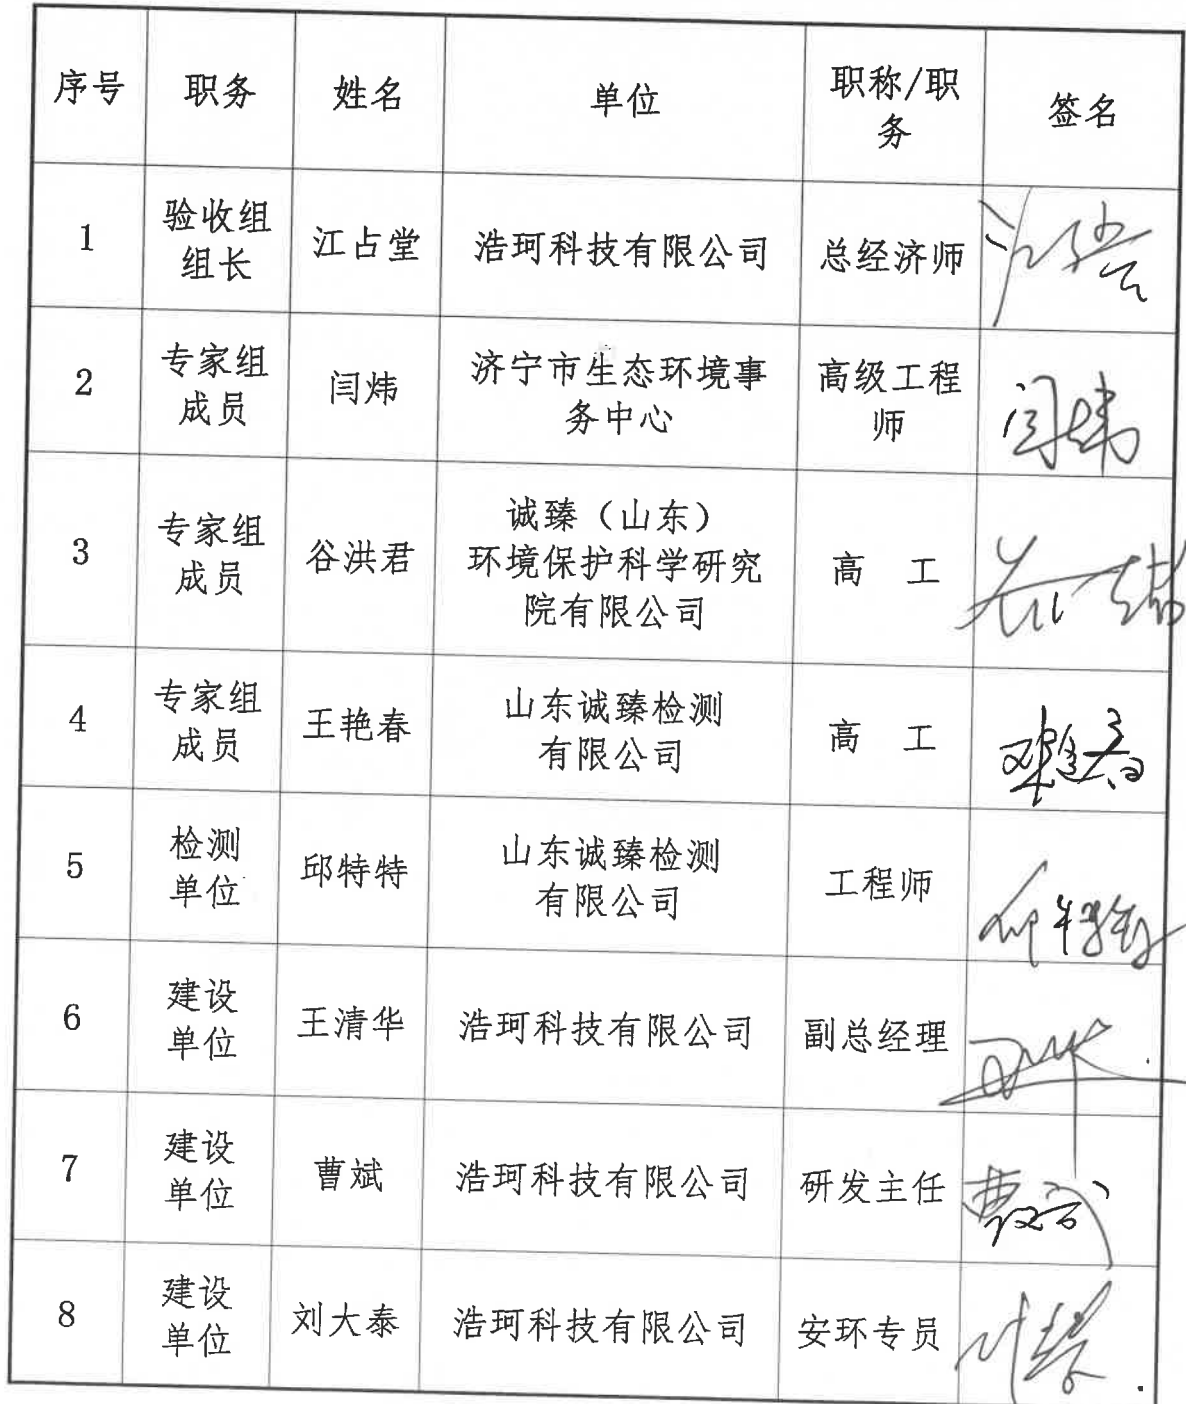 序号 职务 姓名 单位 职称/职
务 签名
1 验收组
组长 江占堂 浩珂科技有限公司 总经济师
2 专家组
成员 闫炜 济宁市生态环境事
务中心 高级工程
师 闫炜
3 专家组
成员 谷洪君 诚臻（山东）
环境保护科学研究
院有限公司 高 工
4 专家组
成员 王艳春 山东诚臻检测
有限公司 高 工 王艳春
5 检测
单位 邱特特 山东诚臻检测
有限公司 工程师 邱特特
6 建设
单位 王清华 浩珂科技有限公司 副总经理
7 建设
单位 曹斌 浩珂科技有限公司 研发主任 曹斌
8 建设
单位 刘大泰 浩珂科技有限公司 安环专员